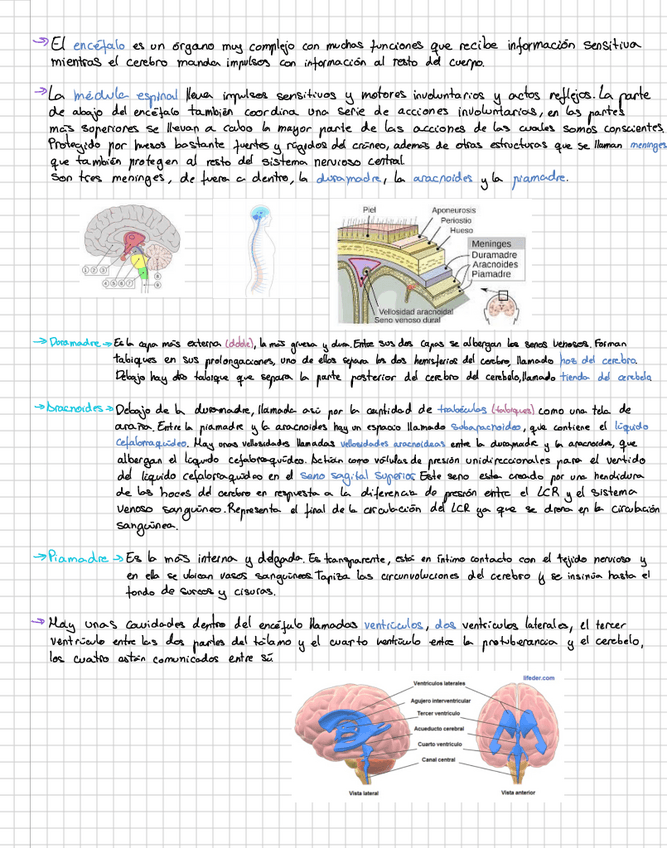 → El encéfalo es un órgano muy complejo con muchas funciones que recibe información sensitiva
mientras el cerebro mandan impulsos con información al resto del cuerpo.
→ La médula espinal lleva impulsos sensitivos y motores involuntarios y actos reflejos. La parte
de abajo del encéfalo también coordina una serie de acciones involuntarias, en las partes
más superiores se llevan a cabo la mayor parte de las acciones de las cuales somos conscientes.
Protegido por huesos bastante fuertes y rígidos del cráneo, además de otras estructuras que se llaman meninges
que también protegen al resto del sistema nervioso central
Son tres meninges, de fuera a dentro, la duramadre, la aracnoides y la piamadre.
Piel
Aponeurosis
Periostio
Hueso
Meninges
Duramadre
Aracnoides
Piamadre
Vellosidad aracnoidal
Seno venoso dural
→ Duramadre → Es la capa más externa (doble), la más gruesa y dura. Entre sus dos capas se albergan los senos venosos. Forman
tabiques en sus prolongaciones, uno de ellos separa los dos hemisferios del cerebro, llamado hoz del cerebro.
Debajo hay otro tabique que separa la parte posterior del cerebro del cerebelo, llamado tienda del cerebelo
→ Aracnoides → Debajo de la duramadre, llamada así por la cantidad de trabéculas (tabiques) como una tela de
araña. Entre la piamadre y la aracnoides hay un espacio llamado subaracnoideo, que contiene el líquido
cefalorraquídeo. Hay unas vellosidades llamadas vellosidades aracnoideas entre la duramadre y la aracnoides, que
albergan el líquido cefalorraquídeo. Actúan como válvulas de presión unidireccionales para el vertido
del líquido cefalorraquídeo en el seno sagital superior. Este seno esta creado por una hendidura
de las hoces del cerebro en respuesta a la diferencia de presión entre el LCR y el sistema
venoso sanguíneo. Representa el final de la circulación del LCR ya que se drena en la circulación
sanguínea.
→ Piamadre → Es la más interna y delgada. Es transparente, está en íntimo contacto con el tejido nervioso y
en ella se ubican vasos sanguíneos. Tapiza las circunvoluciones del cerebro y se insinúa hasta el
fondo de surcos y cisuras.
→ Hay unas cavidades dentro del encéfalo llamados ventrículos, dos ventrículos laterales, el tercer
ventrículo entre las dos partes del tálamo y el cuarto ventrículo entre la protuberancia y el cerebelo,
los cuatro están comunicados entre sí
lifeder.com
Ventrículos laterales
Agujero interventricular
Tercer ventrículo
Acueducto cerebral
Cuarto ventrículo
Canal central
Vista lateral
Vista anterior